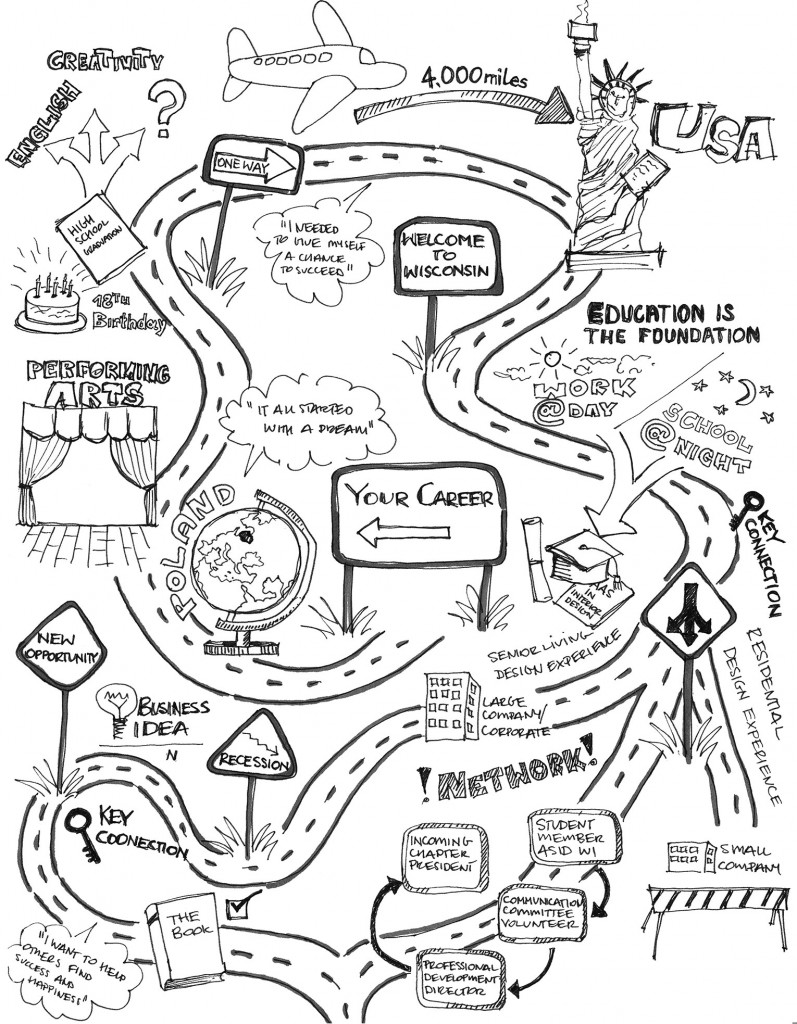 CREATIVITY
ENGLISH
?
4,000 miles
USA
ONE WAY
HIGH
SCHOOL
GRADUATION
"I NEEDED
TO GIVE MYSELF
A CHANCE
TO SUCCEED"
WELCOME
TO
WISCONSIN
18TH
Birthday
EDUCATION IS
THE FOUNDATION
PERFORMING
ARTS
WORK
@ DAY
SCHOOL
@ NIGHT
"IT ALL STARTED
WITH A DREAM"
POLAND
YOUR CAREER
KEY
CONNECTION
AAS
IN
INTERIOR
DESIGN
NEW
OPPORTUNITY
SENIOR LIVING
DESIGN EXPERIENCE
RESIDENTIAL
DESIGN EXPERIENCE
BUSINESS
IDEA
N
RECESSION
LARGE
COMPANY/
CORPORATE
!NETWORK!
KEY
CODNECTION
INCOMING
CHAPTER
PRESIDENT
STUDENT
MEMBER
ASID WI
SMALL
COMPANY
COMMUNICATION
COMMITTEE
VOLUNTEER
THE
BOOK
PROFESSIONAL
DEVELOPMENT
DIRECTOR
"I WANT TO HELP
OTHERS FIND
SUCCESS AND
HAPPINESS"